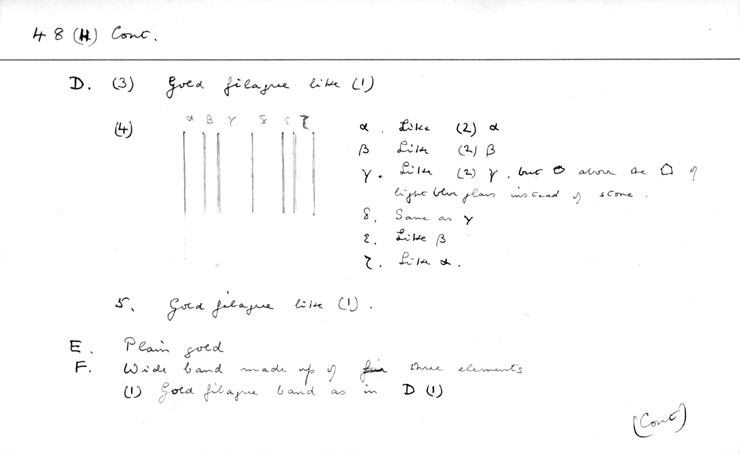 48 (H) Cont.
D. (3) Gold filagree like (1)
(4) α β γ δ ε ζ
α. Like (2) α
β Like (2) β
γ. Like (2) γ, but above the of
light blue glass instead of stone.
δ. Same as γ
ε. Like β
ζ. Like α.
5. Gold filagree like (1).
E. Plain gold
F. Wide band made up of three elements
(1) Gold filagree band as in D (1)
(Cont)